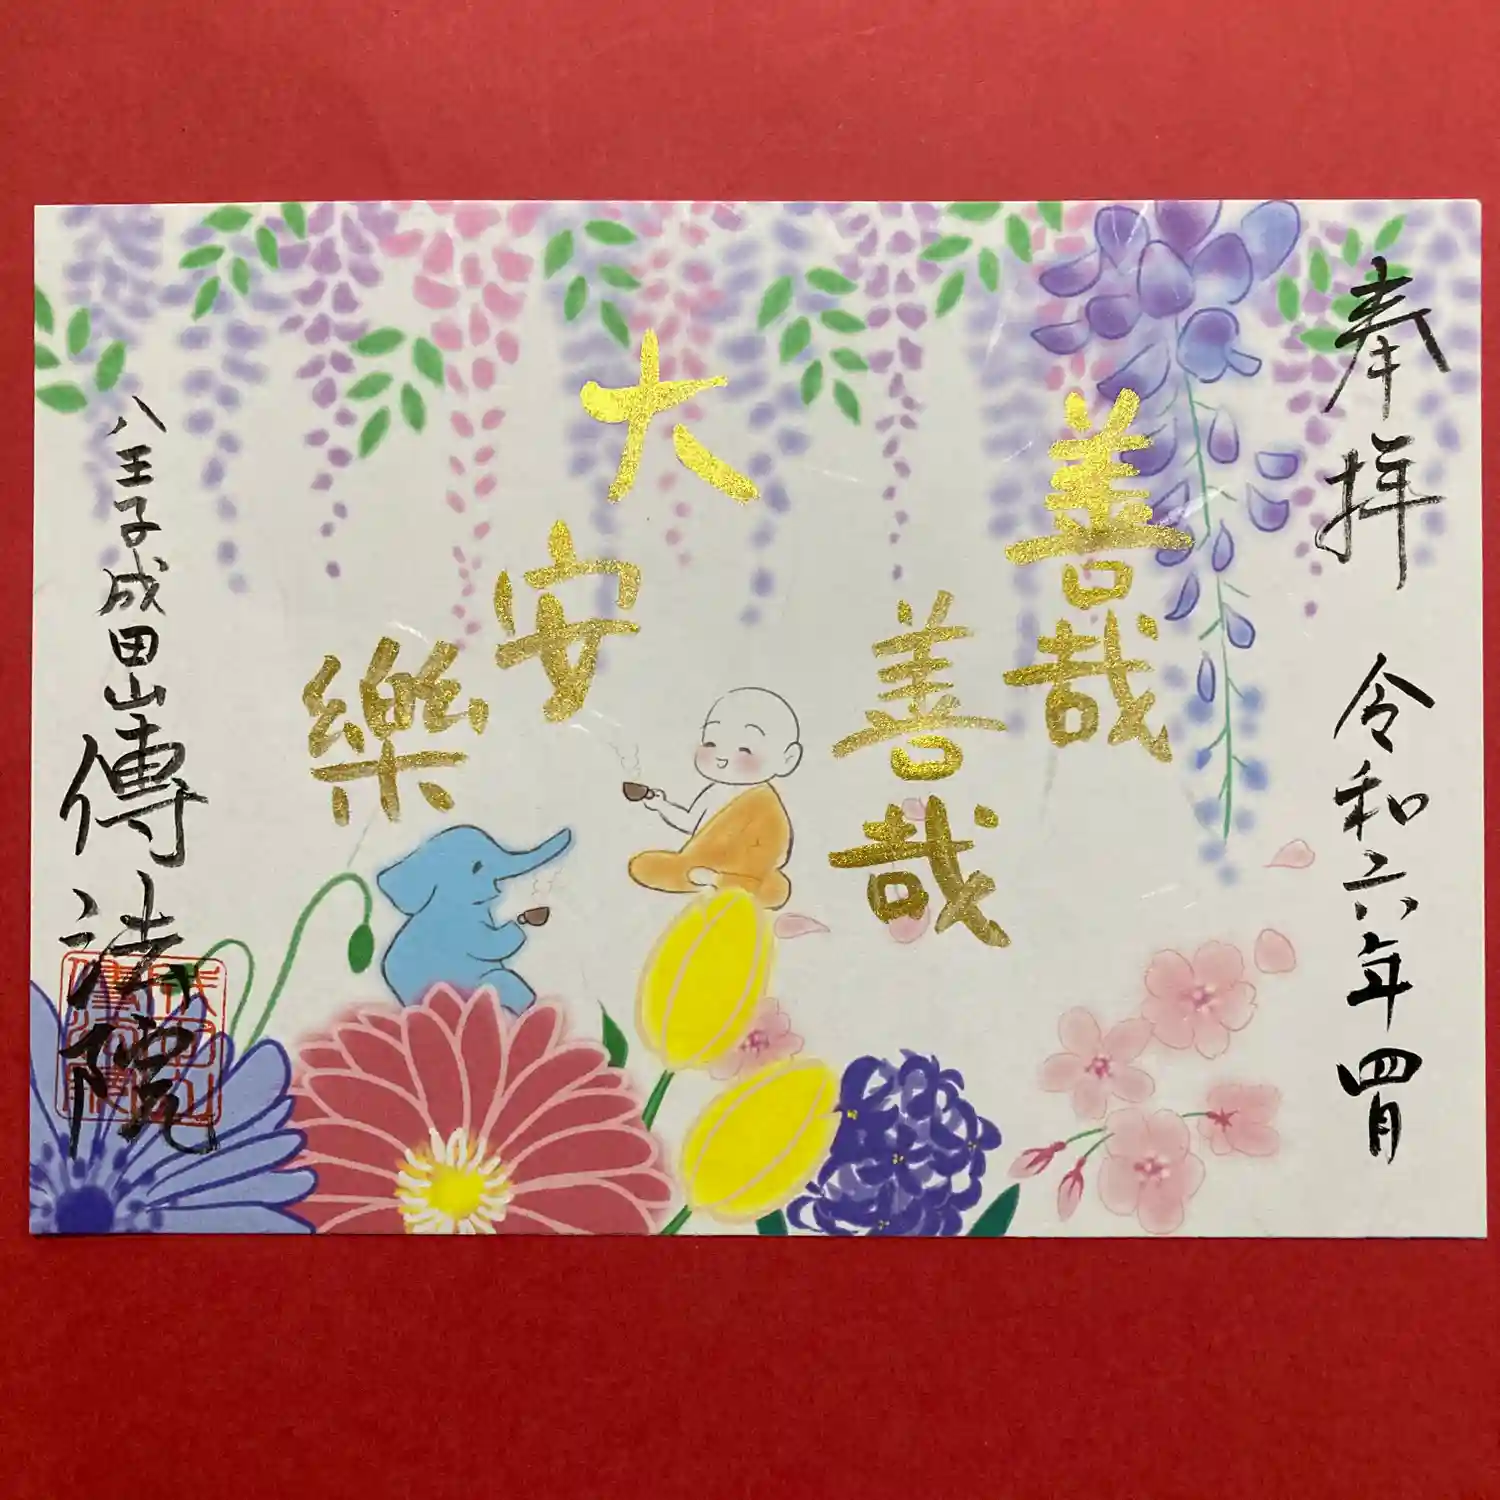 奉拝 令和六年四月
善哉
善哉
大
安
樂
八王子成田山傳法院